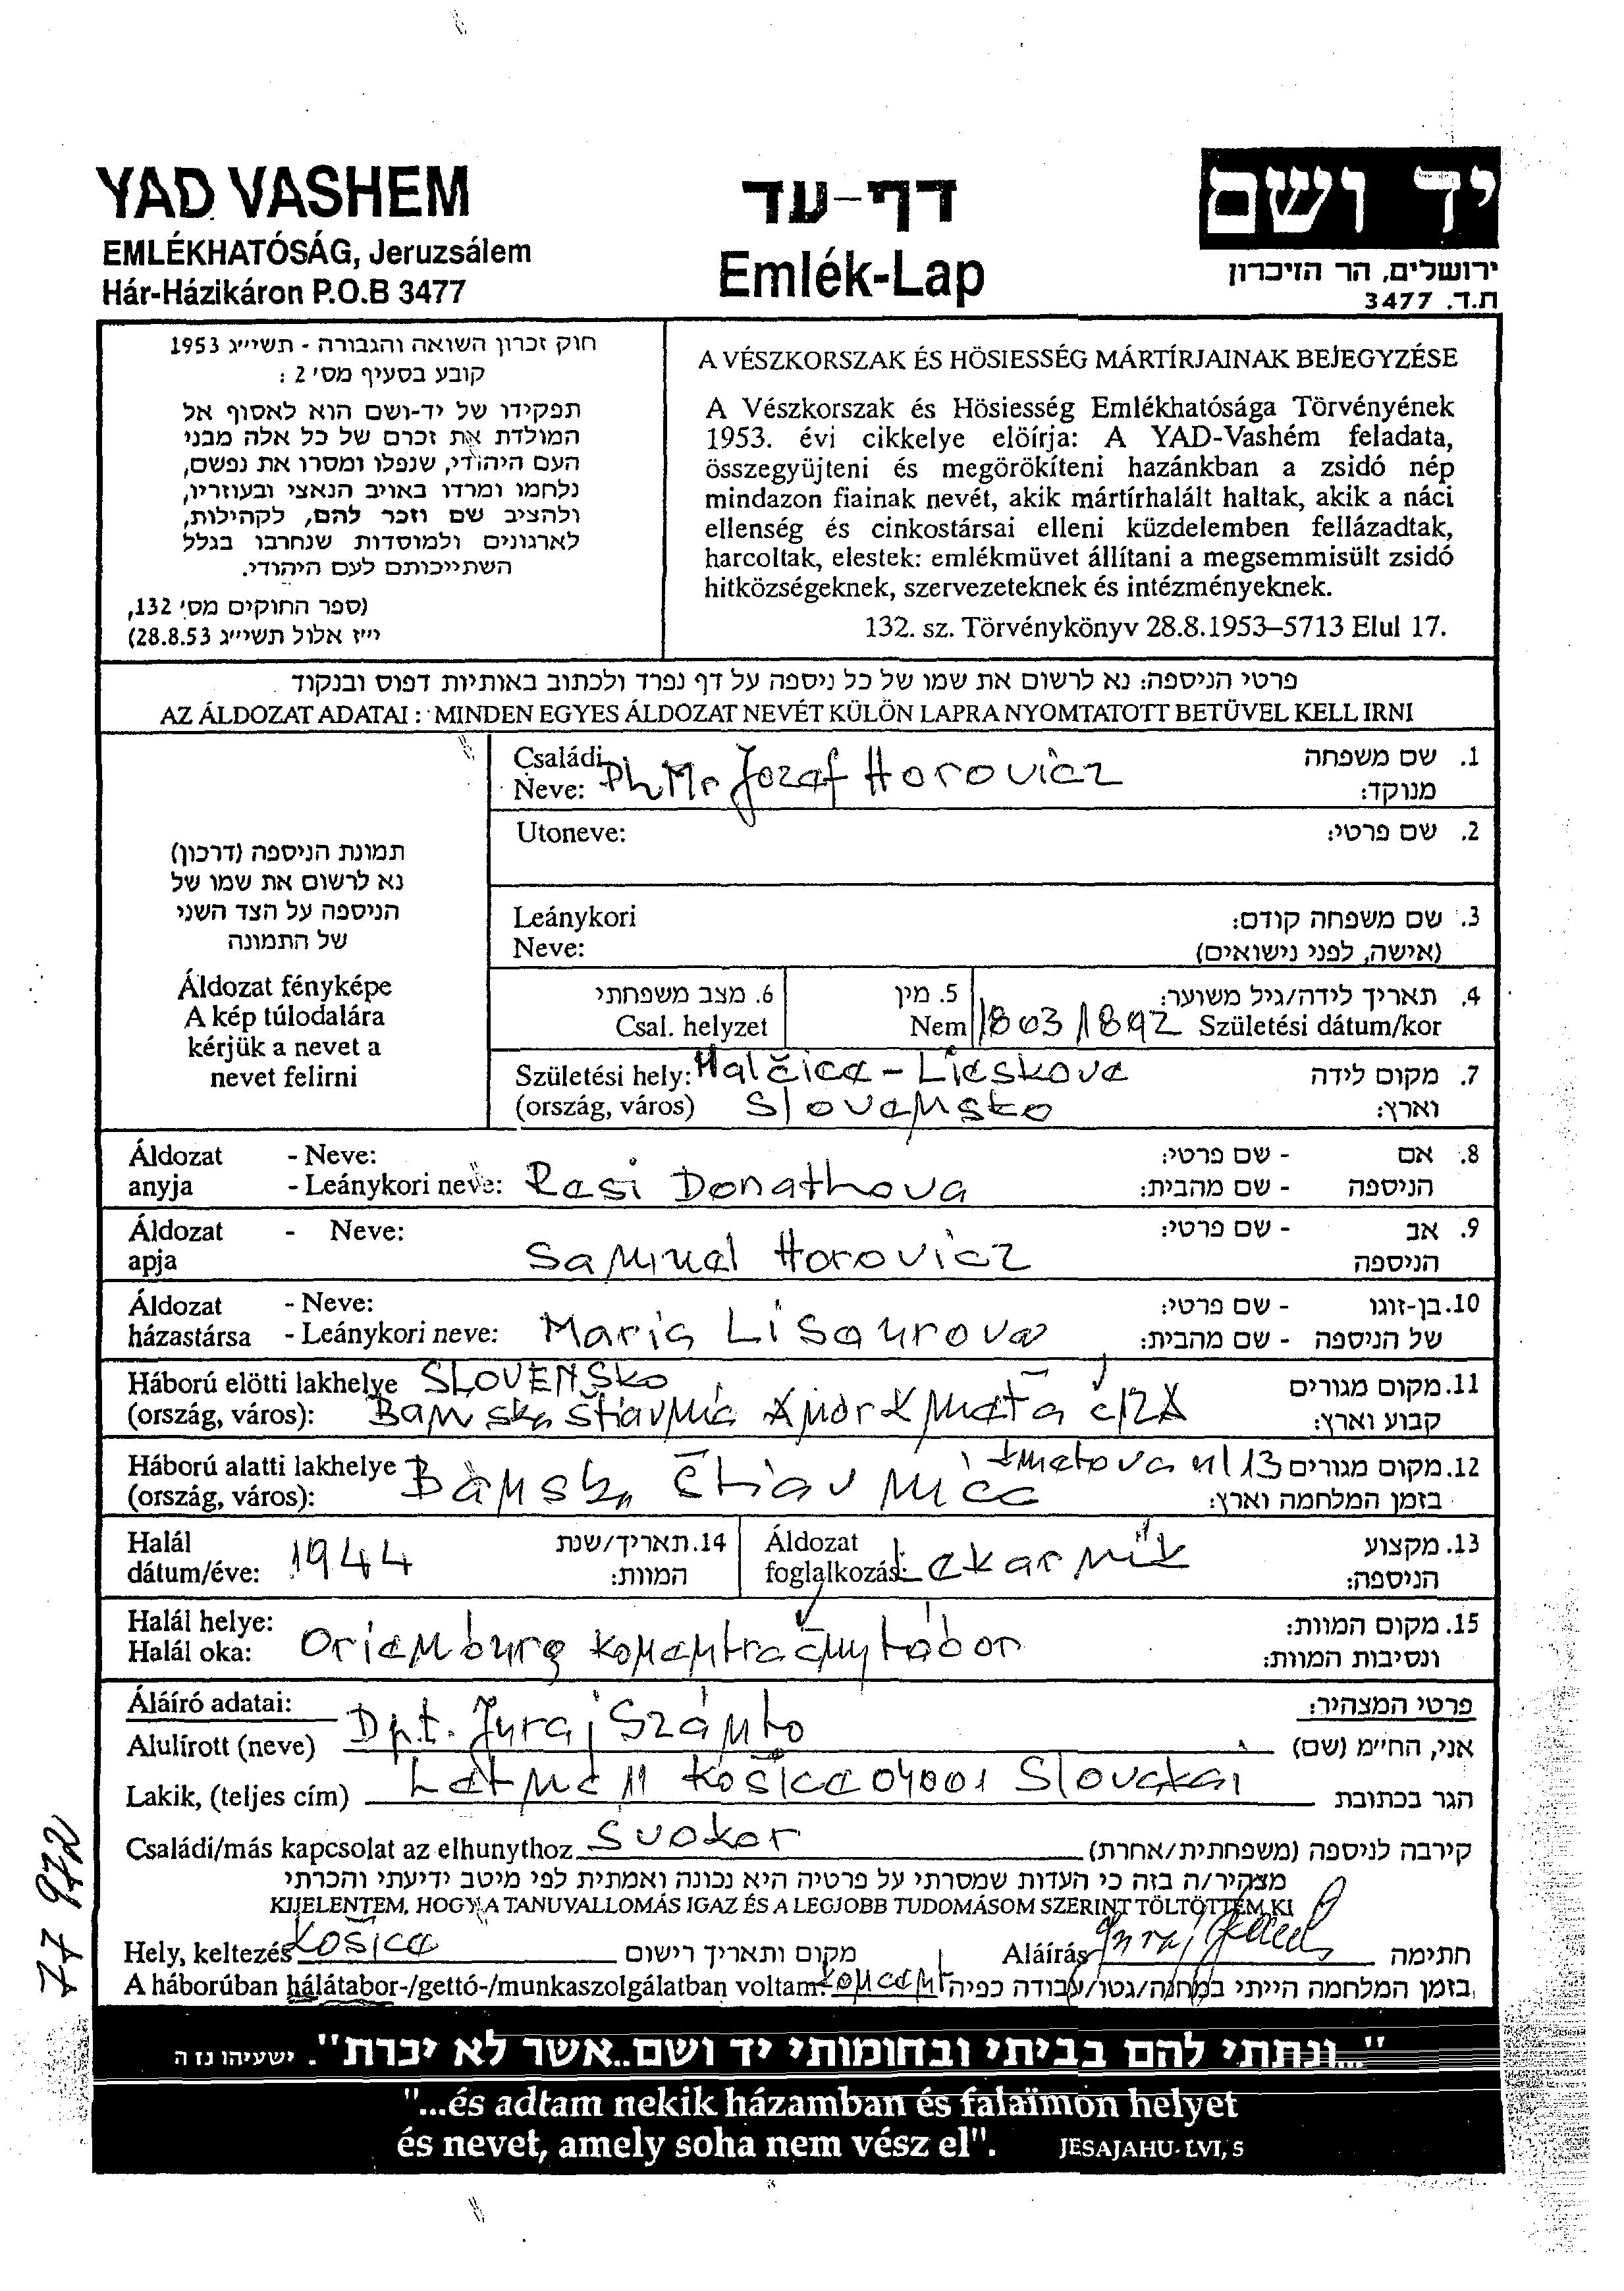 YAD VASHEM
EMLÉKHATÓSÁG, Jeruzsálem
Hár-Házikáron P.O.B 3477
דף-עד
Emlék-Lap
יד ושם
ירושלים, הר הזיכרון
ת.ד. 3477
חוק זכרון השואה והגבורה - תשי״ג 1953
קובע בסעיף מס׳ 2 :
תפקידו של יד-ושם הוא לאסוף אל
המולדת את זכרם של כל אלה מבני
העם היהודי, שנפלו ומסרו את נפשם,
נלחמו ומרדו באויב הנאצי ובעוזריו,
ולהציב שם וזכר להם, לקהילות,
לארגונים ולמוסדות שנחרבו בגלל
השתייכותם לעם היהודי.
(ספר החוקים מס׳ 132,
י״ז אלול תשי״ג 28.8.53)
A VÉSZKORSZAK ÉS HÖSIESSÉG MÁRTÍRJAINAK BEJEGYZÉSE
A Vészkorszak és Hösiesség Emlékhatósága Törvényének
1953. évi cikkelye elöírja: A YAD-Vashém feladata,
összegyüjteni és megörökíteni hazánkban a zsidó nép
mindazon fiainak nevét, akik mártírhalált haltak, akik a náci
ellenség és cinkostársai elleni küzdelemben fellázadtak,
harcoltak, elestek: emlékmüvet állítani a megsemmisült zsidó
hitközségeknek, szervezeteknek és intézményeknek.
132. sz. Törvénykönyv 28.8.1953–5713 Elul 17.
פרטי הניספה: נא לרשום את שמו של כל ניספה על דף נפרד ולכתוב באותיות דפוס ובנקוד
AZ ÁLDOZAT ADATAI : MINDEN EGYES ÁLDOZAT NEVÉT KÜLÖN LAPRA NYOMTATOTT BETÜVEL KELL IRNI
תמונת הניספה (דרכון)
נא לרשום את שמו של
הניספה על הצד השני
של התמונה
Áldozat fényképe
A kép túlodalára
kérjük a nevet a
nevet felirni
Családi
Neve: PhMr Jozef Horovicz
1. שם משפחה
מנוקד:
Utoneve:
2. שם פרטי:
Leánykori
Neve:
3. שם משפחה קודם:
(אישה, לפני נישואים)
6. מצב משפחתי
Csal. helyzet
5. מין
Nem
4. תאריך לידה/גיל משוער:
1803 1892 Születési dátum/kor
Születési hely: Malčice - Lieskove
(ország, város) Slovensko
7. מקום לידה
וארץ:
Áldozat - Neve:
anyja - Leánykori neve: Resi Donathova
8. אם - שם פרטי:
הניספה - שם מהבית:
Áldozat - Neve:
apja Samuel Horovicz
9. אב - שם פרטי:
הניספה
Áldozat - Neve:
házastársa - Leánykori neve: Maria Lisaurova
10. בן-זוגו - שם פרטי:
של הניספה - שם מהבית:
Háború elötti lakhelye SLOVENSko
(ország, város): Banská Štiavnica
11. מקום מגורים
קבוע וארץ:
Háború alatti lakhelye Bánská Štiavnica
(ország, város):
12. מקום מגורים
בזמן המלחמה וארץ:
Halál
dátum/éve: 1944
14. תאריך/שנת
המוות:
Áldozat
foglalkozás: Lekarnik
13. מקצוע
הניספה:
Halál helye:
Halál oka: Orienburg koncentračny tábor
15. מקום המוות:
ונסיבות המוות:
Áláíró adatai:
פרטי המצהיר:
Alulírott (neve) Dpt. Juraj Szánto
אני, הח״מ (שם)
Lakik, (teljes cím) Letná 11 Košice 04001 Slovakai
הגר בכתובת
Családi/más kapcsolat az elhunythoz Svokor
קירבה לניספה (משפחתית/אחרת)
מצהיר/ה בזה כי העדות שמסרתי על פרטיה היא נכונה ואמתית לפי מיטב ידיעתי והכרתי
KIJELENTEM, HOGY A TANUVALLOMÁS IGAZ ÉS A LEGJOBB TUDOMÁSOM SZERINT TÖLTÖTTEM KI
Hely, keltezés Košice
מקום ותאריך רישום
Aláírás
חתימה
A háborúban hálátabor-/gettó-/munkaszolgálatban voltam: Koncent
בזמן המלחמה הייתי במחנה/גטו/עבודה כפיה
77 972
"...ונתתי להם בביתי ובחומותי יד ושם..אשר לא יכרת". ישעיהו נז ה
"...és adtam nekik házamban és falaïmon helyet
és nevet, amely soha nem vész el". JESAJAHU- LVI, 5